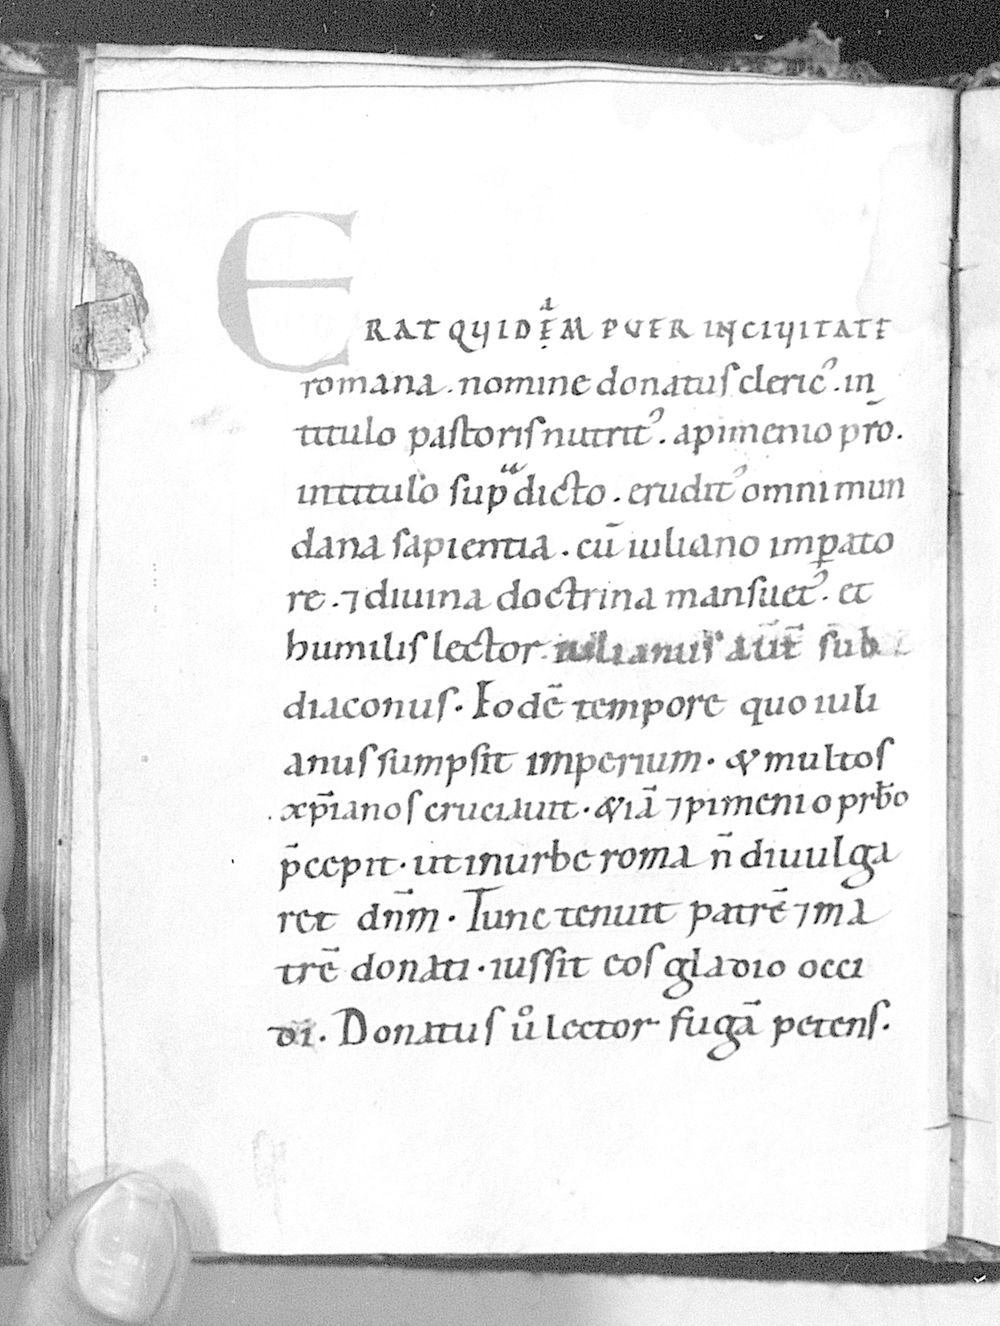 ERAT QUIDĒM PUER IN CIUITATE
romana. nomine donatus cleric᾽. in
titulo pastoris nutrit᾽. apimenio p̄ro.
in titulo supͣdicto. erudit᾽ omni mun
dana sapientia. cū iuliano imꝑato
re. ⁊ diuina doctrina mansuet᾽. et
humilis lector. iulianus aūt̄ sub
diaconus. Eodē tempore quo iuli
anus sumpsit imperium. & multos
xp̄ianos cruciauit. &iā ⁊ pimenio prb̄o
p̄cepit. ut in urbe roma n̄ diuulga
ret dn̄m. Tunc tenuit patrē ⁊ ma
trē donati. iussit eos gladio occi
di. Donatus ů lector fugā petens.